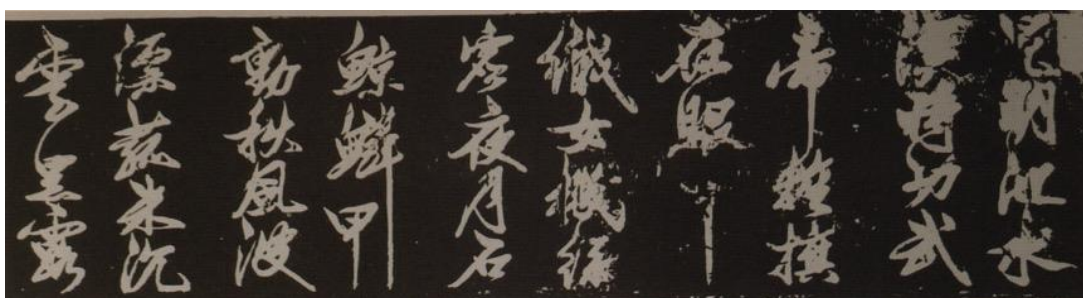 昆明池水
漢時功武
帝旌旗
在眼中
織女機絲
虛夜月石
鯨鱗甲
動秋風波
漂菰米沉
雲黑露